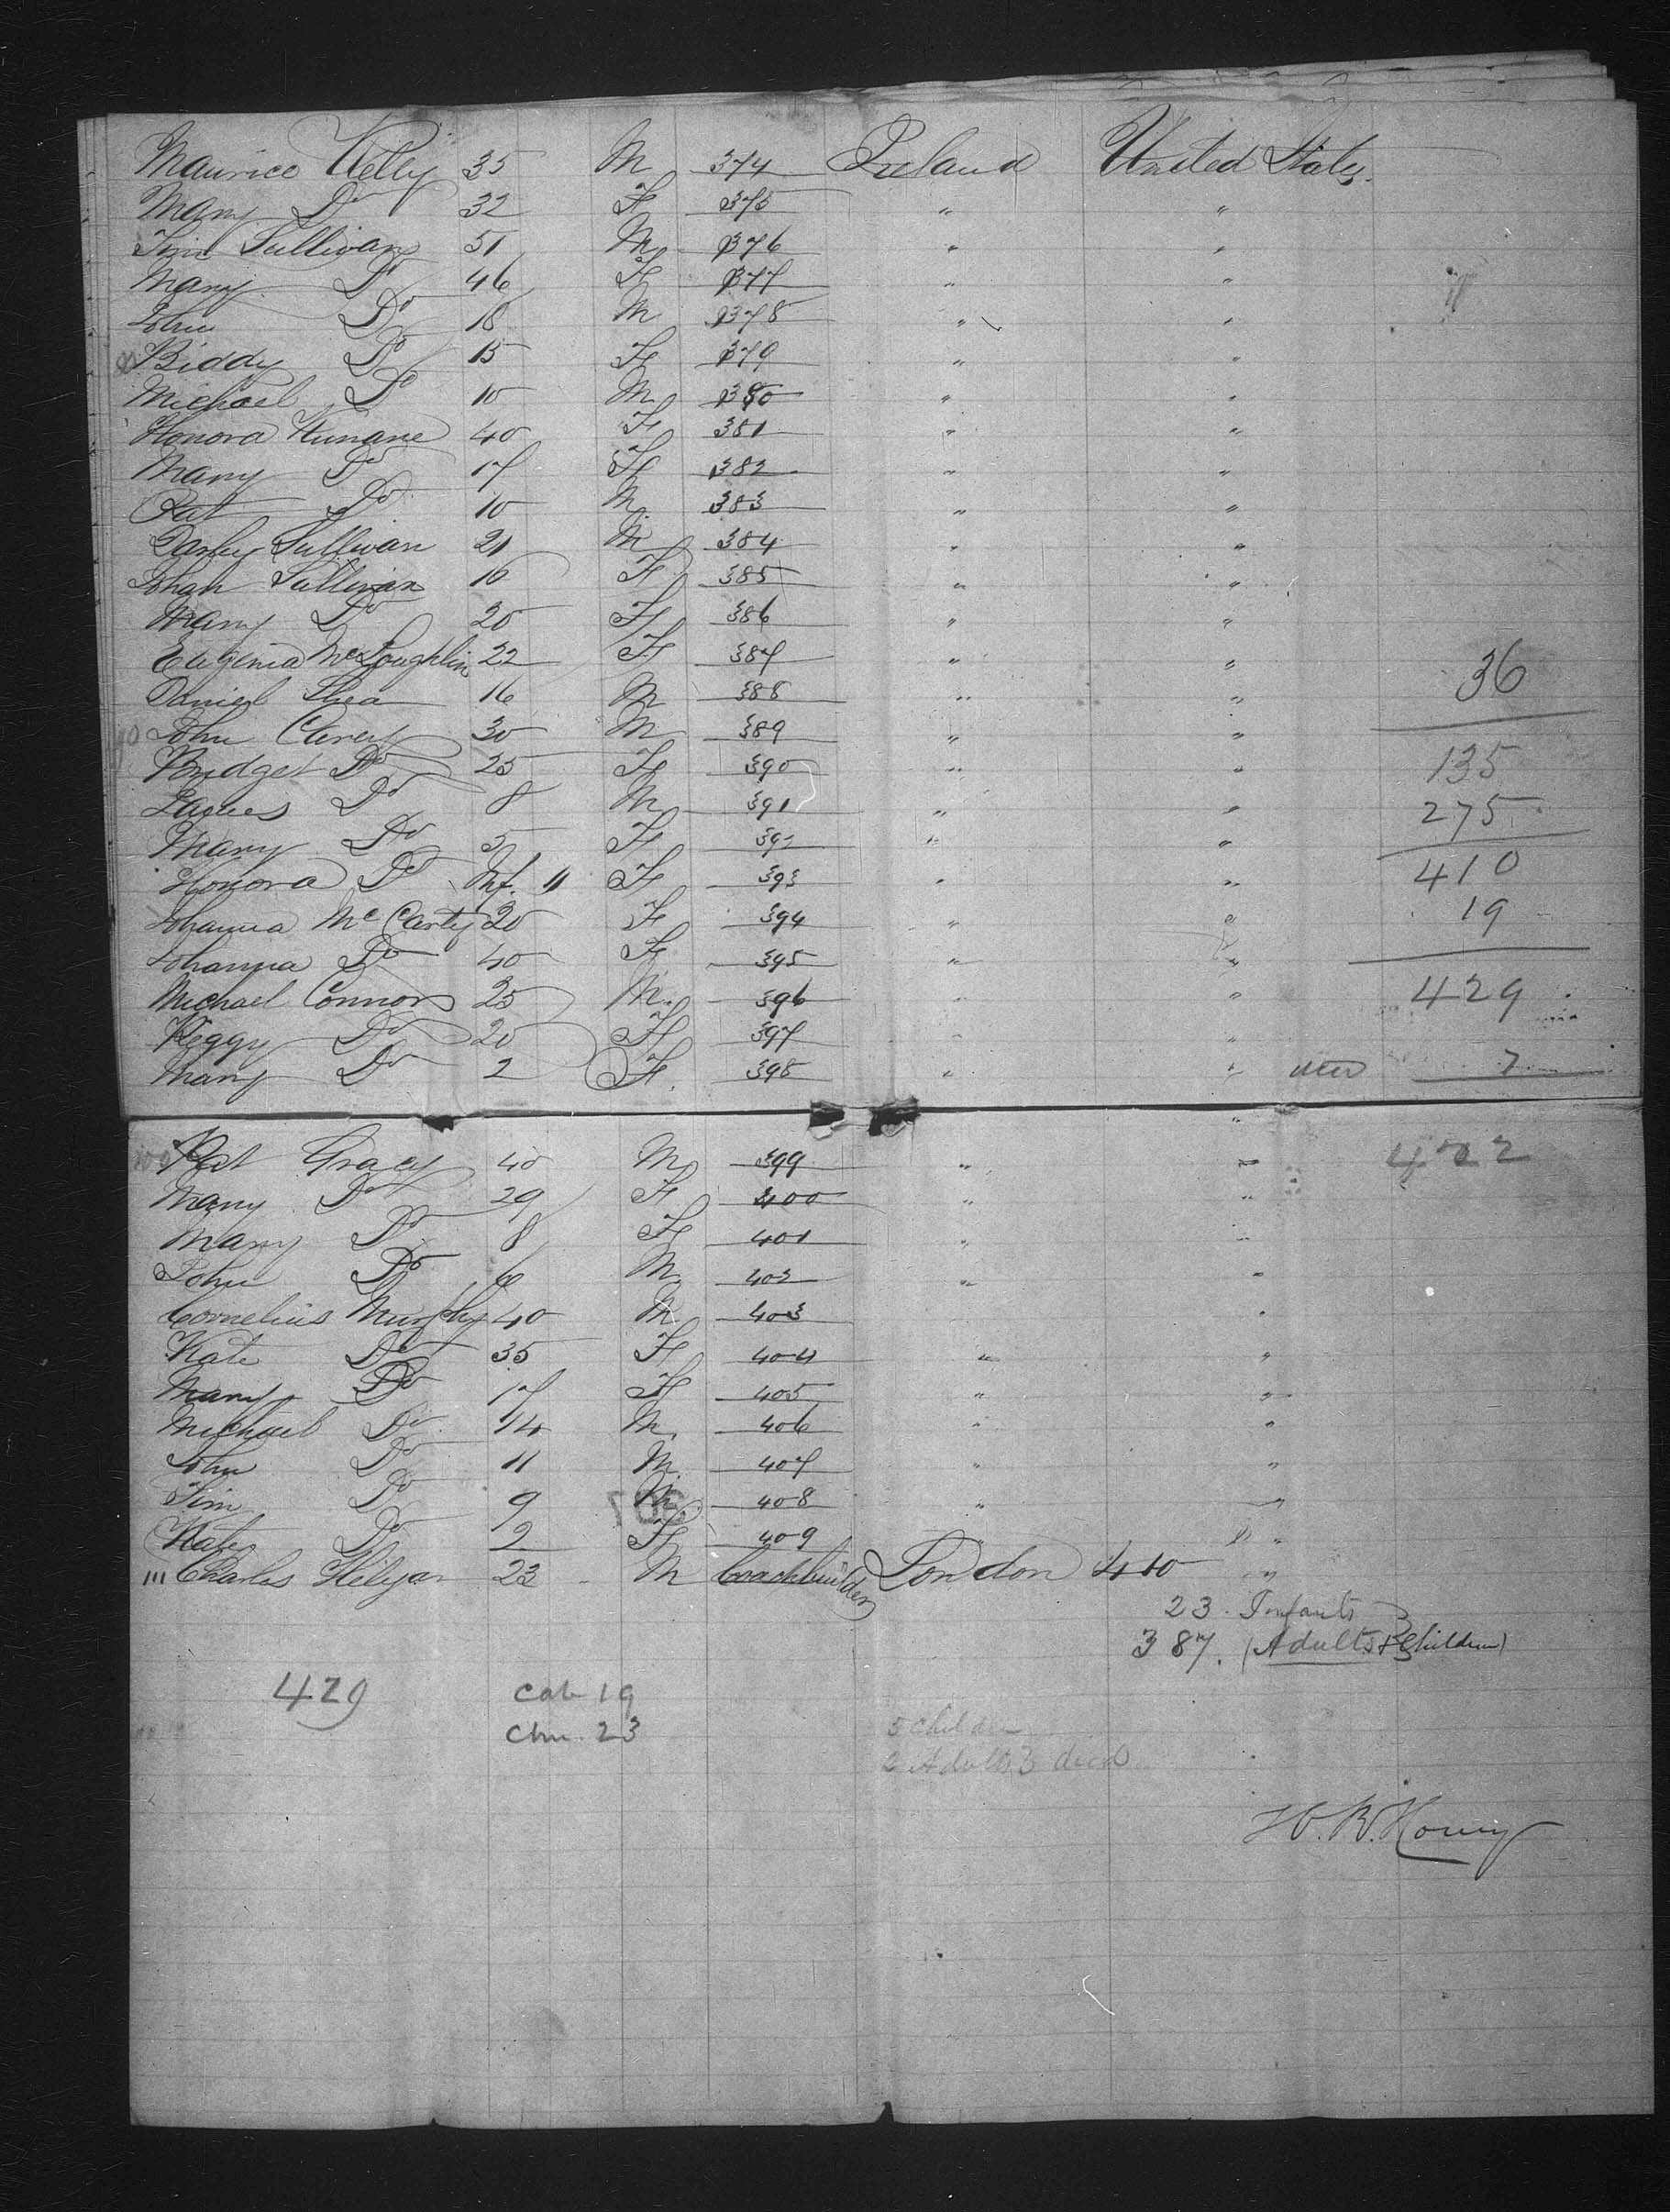 Maurice Kelly 35 M 374 Ireland United States.
Mary Do 32 F 375 " "
Tim Sullivan 51 M 376 " "
Mary Do 46 F 377 " "
John Do 18 M 378 " "
Biddy Do 15 F 379 " "
Michael Do 10 M 380 " "
Honora Kunane 40 F 381 " "
Mary Do 17 F 382 " "
Pat Do 10 M 383 " "
Darby Sullivan 21 M 384 " "
Johan Sullivan 16 F 385 " "
Mary Do 20 F 386 " "
Eugenia McLoughlin 22 F 387 " "
Daniel Shea 16 M 388 " " 36
John Carey 30 M 389 " "
Bridget Do 25 F 390 " " 135
James Do 8 M 391 " " 275
Mary Do 5 F 392 " "
Honora Do Inf. 11 F 393 " " 410
Johanna McCarty 20 F 394 " " 19
Johanna Do 40 F 395 " "
Michael Connor 25 M. 396 " " 429
Peggy Do 20 F 397 " "
Mary Do 2 F. 398 " " 7
Pat Gracy 40 M 399 " " 422
Mary Do 29 F 400 " "
Mary Do 8 F 401 " "
John Do 6 M 402 " "
Cornelius Murphy 40 M 403 "
Kate Do 35 F 404 " "
Mary Do 17 F 405 " "
Michael Do 14 M. 406 " "
John Do 11 M. 407 " "
Tim Do 9 M. 408 " "
Kate Do 2 F 409 " "
Charles 23 M Coachbuilder London 410 "
23. Infants
387. (Adults & Children)
429 Cab 19
Chn. 23
5 Children
2 Adults died